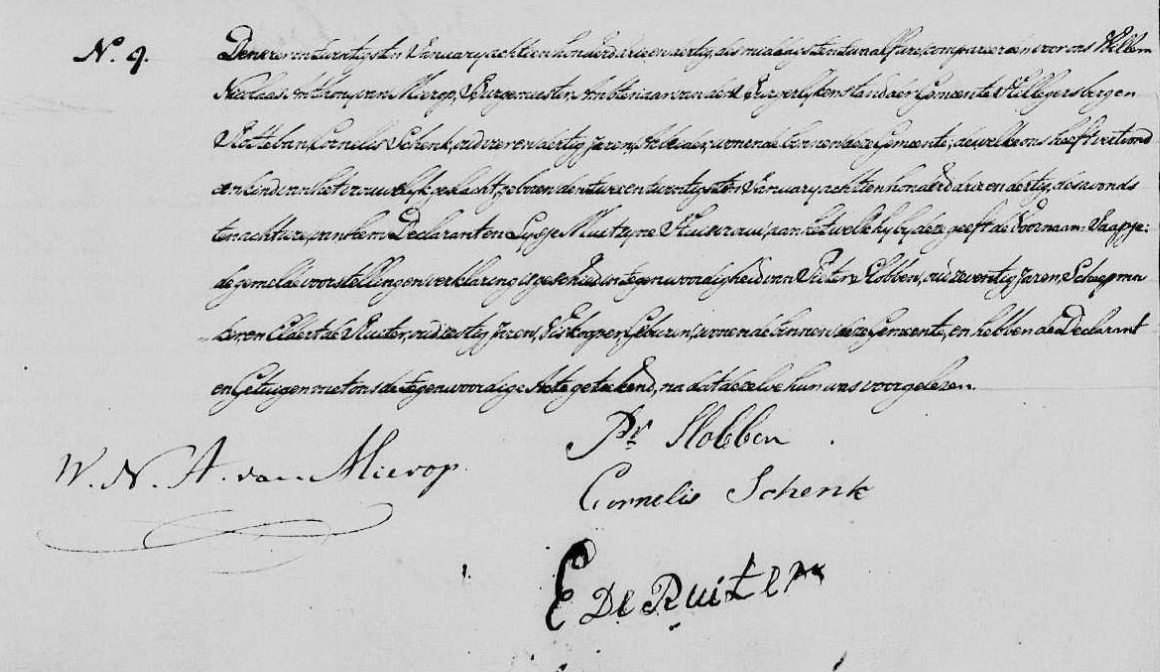 N.º 9.
Den een en twentigsten January achttien honderd drie en dertig, des middags ten twaalf ure, compareerden voor ons Willem
Nicolaas Anthony van Mierop, Burgemeester, Ambtenaar van den Burgerlyken stand der Gemeente Hillegersberg en
Rotteban, Cornelis Schenk, oud vier en dertig Jaren, Arbeider, wonende binnen deze Gemeente, dewelke ons heeft vertoond
een kind van het vrouwelyk geslacht, geboren den twintigsten January achttien honderd drie en dertig, des avonds
ten acht ure, van hem Declarant en Huisvrouw, aan hetwelk hy by deze geeft de Voornaam Jaapje:
de gemelde voorstelling en verklaring is geschied in tegenwoordigheid van Pieter Slobben, oud zeventig Jaren, Scheepma
ker, en Eldert de Ruiter, oud zestig Jaren, Viskooper, Geburen, wonende binnen deze Gemeente, en hebben de Declarant
en Getuigen met ons de tegenwoordige Acte geteekend, na dat dezelve hun was voorgelezen.
Pr Slobben
W. N. A. van Mierop.
Cornelis Schenk
E De Ruiter